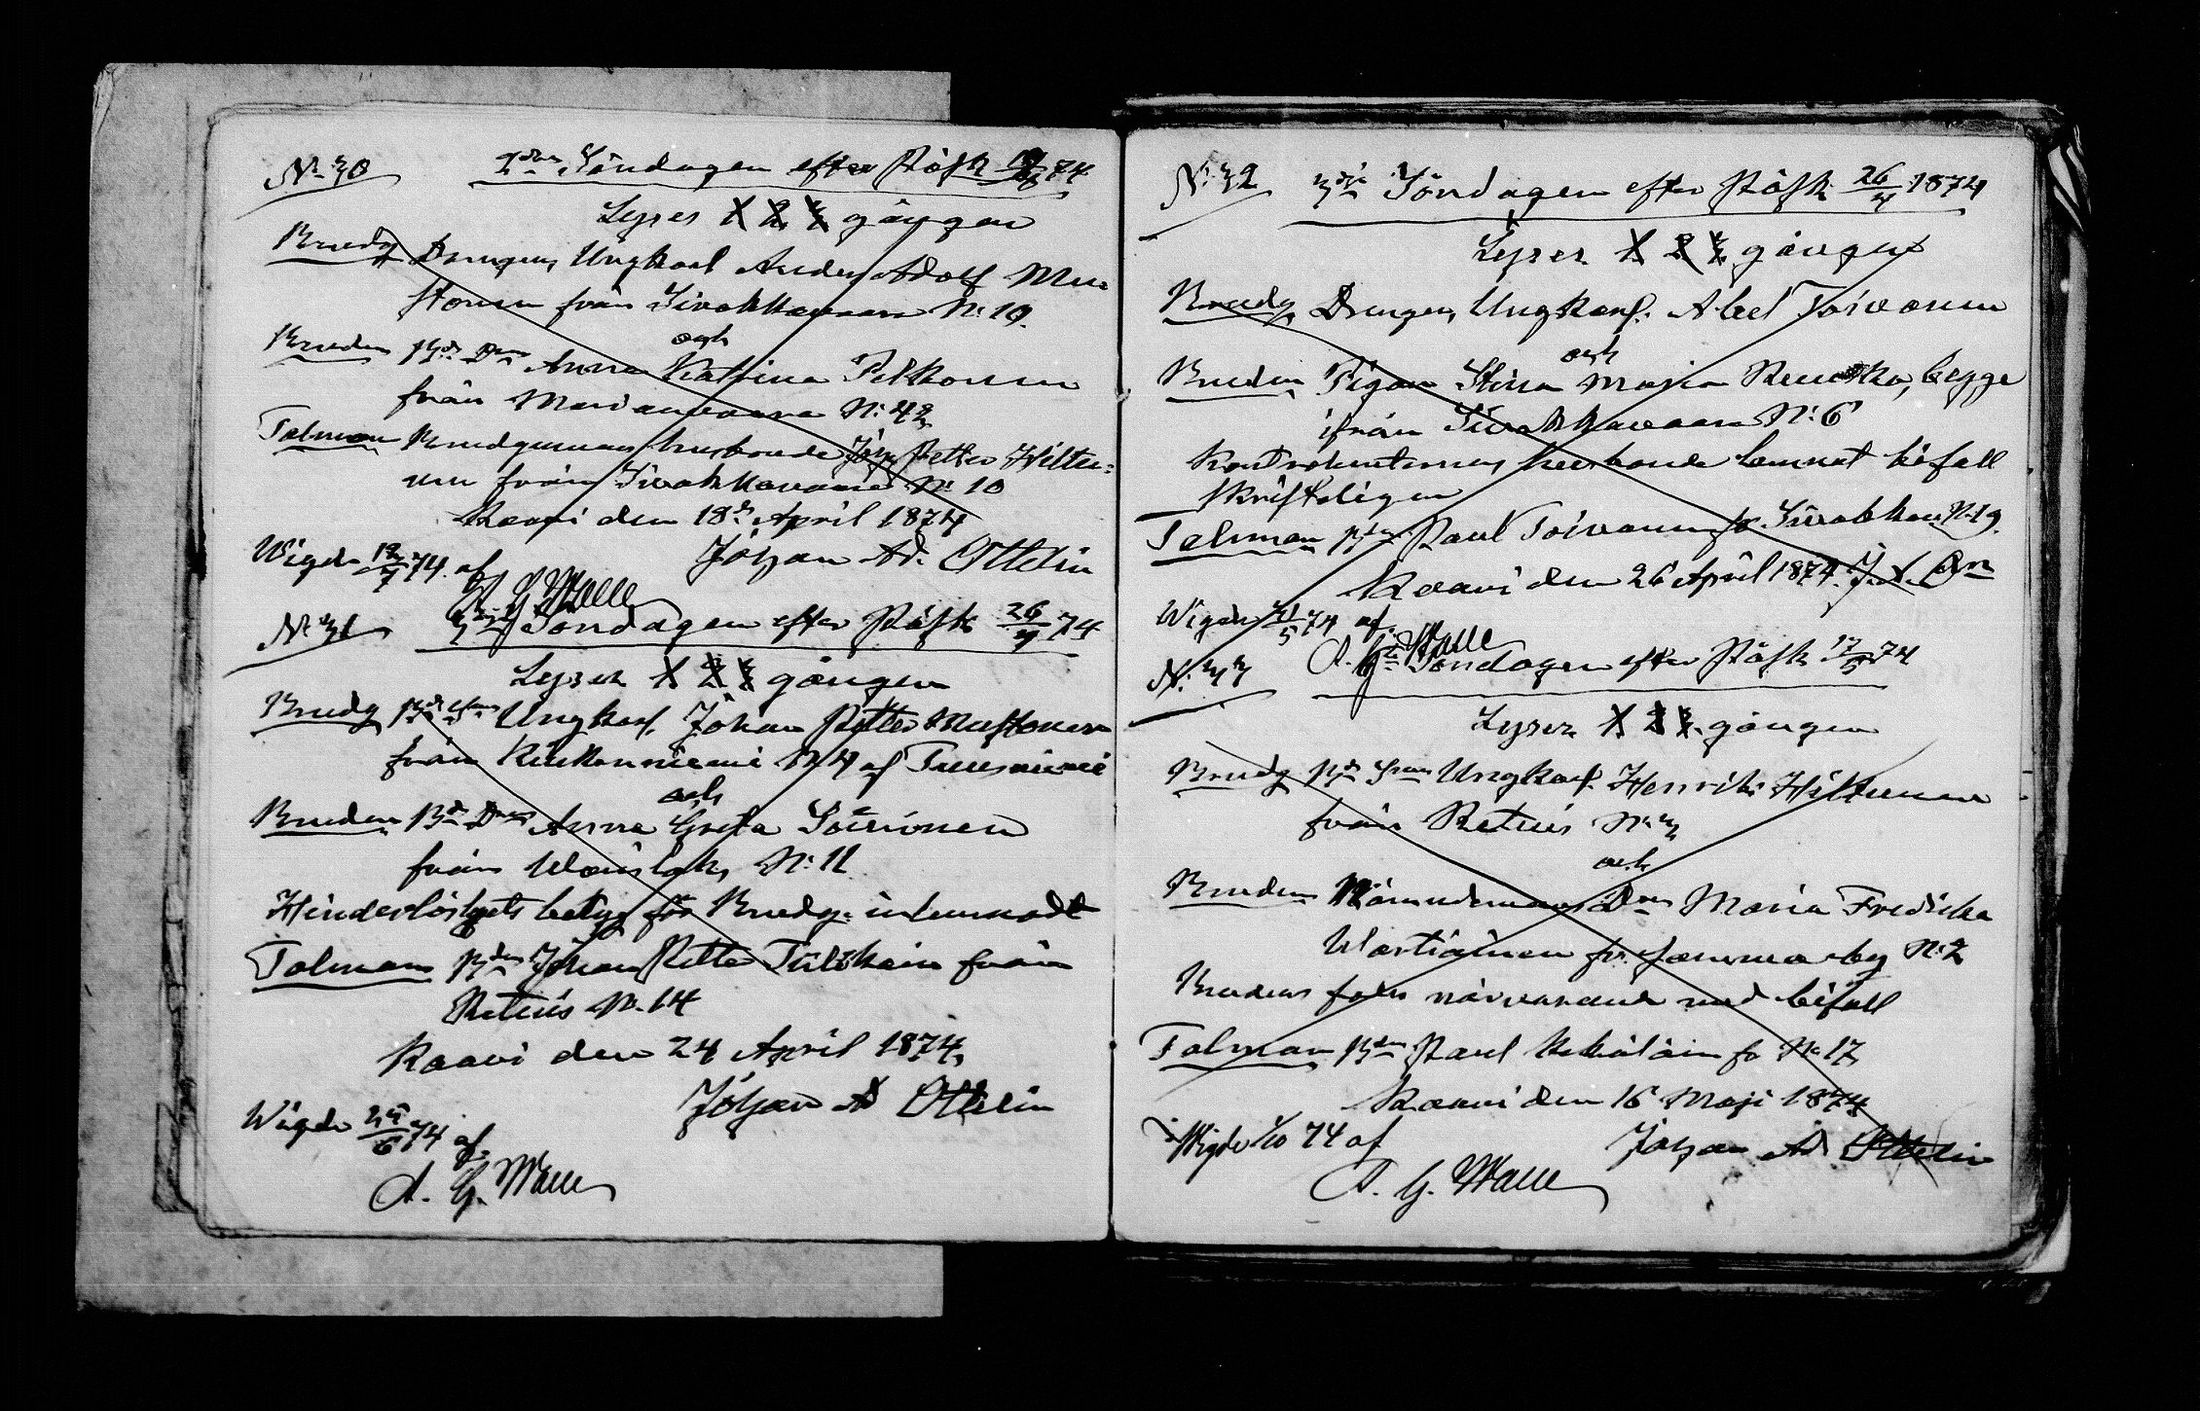 N:o 30 2dra Söndagen efter Påsk 19/4 74
Lyses 1 2 3 gången
Brudg Drengen, Ungkarl Anders Adolf Mu-
stonen från Siwakkawaara N:o 10.
och
Bruden Bd Dnn Anna Katrina Pelkonen
från Marianwaara N:o 42
Talman Brudgummens husbonde Joh: Petter Hiltu-
nen från Siwakkawaara N:o 10
Kaawi den 18de April 1874
Johan Ad. Ottelin
Wigde 74. af
A. G. Walle
N:o 31 3dje Söndagen efter Påsk 26/4 74
Lyses 1 2 3 gången
Brudg Bd Ungkarl. Johan Petter Mustonen
från N:o 4 af Tuusniemi
och
Bruden Bd Dnn Anna Greta
från N:o 11
Hinderlöshets betyg för Brudg: inlemnadt
Talman Bden Johan Petter från
Retuis N:o 14
Kaawi den 24 April 1874,
Johan Ad Ottelin
Wigde 74 af
A. G. Walle
N:o 32 3dje Söndagen efter Påsk 26/4 1874
Lyses 1 2 3 gången
Brudg Drengen, Ungkarl. Abel Toivanen
och
Bruden Pigan Stina Maja begge
ifrån Siwakkawaara N:o 6
Kontrahenternas husbonde lemnat bifall
skriftligen
Talman Bden Paul Toivanen fr. Siwakka N:o 19.
Kaawi den 26 April 1874. J. A. Ottn
Wigde 74 af
A. G. Walle
N:o 33 Söndagen efter Påsk 17/5 74
Lyses 1 2 3 gången
Brudg Bd Son Ungkarl. Henrik Hiltunen
från Retuis N:o 3
och
Bruden Nämndemans Dnn Maria Fredrika
Wartiainen fr. Jamma by N:o 2
Brudens fader närvarande med bifall
Talman Bden Paul fr N:o 17
Kaawi den 16 Maji 1874
Johan Ad Ottelin
Wigde 74 af
A. G. Walle